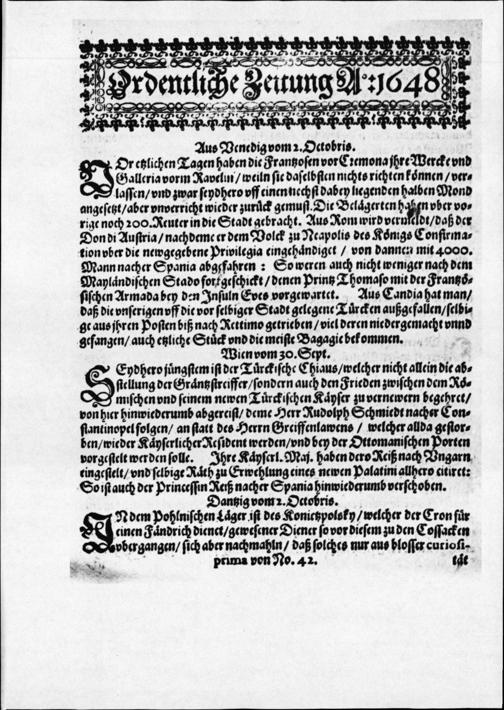 Ordentliche Zeitung A°: 1648
Aus Venedig vom 2. Octobris.
VOr etzlichen Tagen haben die Frantzosen vor Cremona jhre Wercke vnd
Galleria vorm Ravelin / weiln sie daselbsten nichts richten können / ver-
lassen / vnd zwar seydhero vff einen nechst dabey liegenden halben Mond
angesetzt / aber vnverricht wieder zurück gemust. Die Belägerten haben vber vo-
rige noch 200. Reuter in die Stadt gebracht. Aus Rom wird vermeldt / daß der
Don di Austria / nachdeme er dem Volck zu Neapolis des Königs Confirma-
tion vber die newgegebene Privilegia eingehändiget / von dannen mit 4000.
Mann nacher Spania abgefahren : So weren auch nicht weniger nach dem
Mayländischen Stado fortgeschickt / denen Printz Thomaso mit der Frantzö-
sischen Armada bey den Insuln Eves vorgewartet. Aus Candia hat man /
daß die vnserigen vff die vor selbiger Stadt gelegene Türcken außgefallen / selbi-
ge aus jhren Posten biß nach Rettimo getrieben / viel deren niedergemacht vnnd
gefangen / auch etzliche Stück vnd die meiste Bagagie bekommen.
Wien vom 30. Sept.
SEydhero jüngstem ist der Türckische Chiaus / welcher nicht allein die ab-
stellung der Gräntzstreiffer / sondern auch den Frieden zwischen dem Rö-
mischen vnd seinem newen Türckischen Käyser zu vernewern begehret /
von hier hinwiederumb abgereist / deme Herr Rudolph Schmiedt nacher Con-
stantinopel folgen / an statt des Herrn Greiffenlawens / welcher allda gestor-
ben / wieder Käyserlicher Resident werden / vnd bey der Ottomanischen Porten
vorgestelt werden solle. Ihre Käyserl. Maj. haben dero Reiß nach Vngarn
eingestelt / vnd selbige Räth zu Erwehlung eines newen Palatini allhero citiret:
So ist auch der Princessin Reiß nacher Spania hinwiederumb verschoben.
Dantzig vom 2. Octobris.
IN dem Pohlnischen Läger ist des Konietzpolsky / welcher der Cron für
einen Fändrich dienet / gewesener Diener so vor diesem zu den Cossacken
vbergangen / sich aber nachmahln / daß solches nur aus blosser curiosi-
prima von No. 42. tät